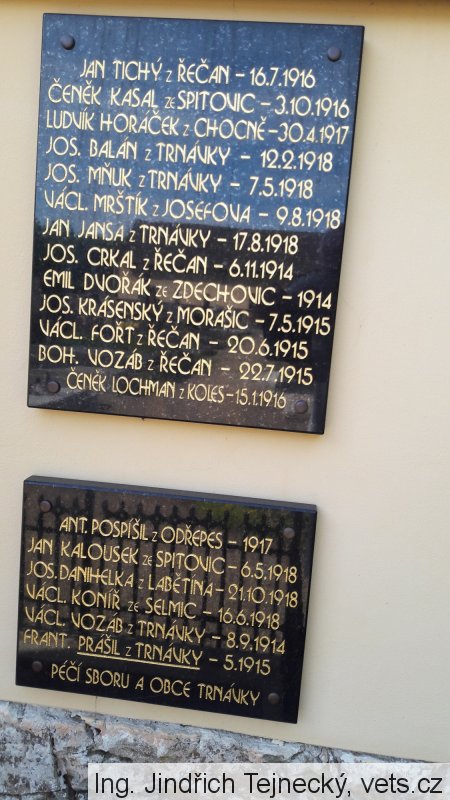 JAN TICHÝ Z ŘEČAN – 16.7.1916
ČENĚK KASAL ZE SPITOVIC – 3.10.1916
LUDVÍK HORÁČEK Z CHOCNĚ – 30.4.1917
JOS. BALÁN Z TRNÁVKY – 12.2.1918
JOS. MŇUK Z TRNÁVKY – 7.5.1918
VÁCL. MRŠTÍK Z JOSEFOVA – 9.8.1918
JAN JANSA Z TRNÁVKY – 17.8.1918
JOS. CRKAL Z ŘEČAN – 6.11.1914
EMIL DVOŘÁK ZE ZDECHOVIC – 1914
JOS. KRÁSENSKÝ Z MORAŠIC – 7.5.1915
VÁCL. FOŘT Z ŘEČAN – 20.6.1915
BOH. VOZÁB Z ŘEČAN – 22.7.1915
ČENĚK LOCHMAN Z KOLES – 15.1.1916
ANT. POSPÍŠIL Z ODŘEPES – 1917
JAN KALOUSEK ZE SPITOVIC – 6.5.1918
JOS. DANIHELKA Z LABĚTÍNA – 21.10.1918
VÁCL. KONÍŘ ZE SELMIC – 16.6.1918
VÁCL. VOZÁB Z TRNÁVKY – 8.9.1914
FRANT. PRÁŠIL Z TRNÁVKY – 5.1915
PÉČÍ SBORU A OBCE TRNÁVKY
Ing. Jindřich Tejnecký, vets.cz